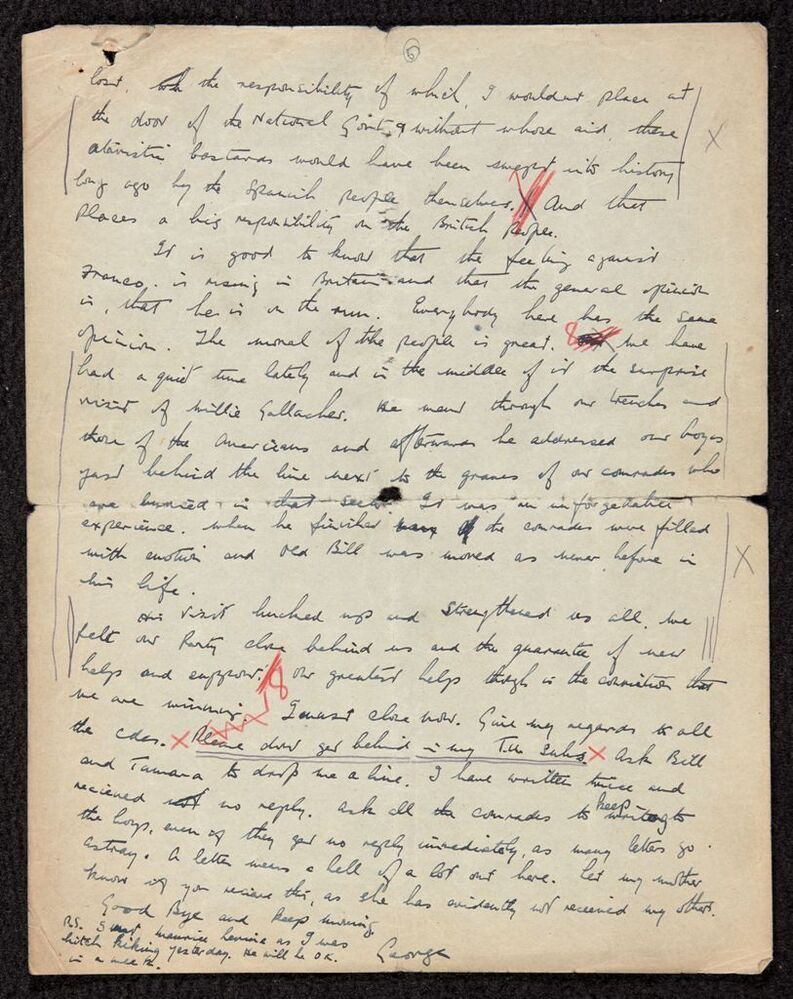 5
lost, the responsibility of which, I wouldnt place at
the door of the National Gov't, & without whose aid, these
atavistic bastards would have been swept into history
long ago by the Spanish people themselves. And that
places a big responsibility on the British people.
It is good to know that the feeling against
Franco. is rising in Britain and that the general opinion
is, that he is on the run. Everybody here has the same
opinion. The moral of the people is great. 8 We have
had a quiet time lately and in the middle of it the surprise
visit of Willie Gallacher. He went through our trenches and
those of the Americans and afterwards he addressed our boys
just behind the line next to the graves of our comrades who
are burried in that sector. It was an unforgetable
experience. When he finished many of the comrades were filled
with emotion and Old Bill was moved as never before in
his life.
His visit bucked us up and strengthened us all. We
felt our Party close behind us and the guarantee of new
help and support. 8 Our greatest help though is the conviction that
we are winning. I must close now. Give my regards to all
the cdes. X Please dont get behind in my T.U. Subs. X Ask Bill
and Tamara to drop me a line. I have written twice and
recieved no reply. Ask all the comrades to keep writing to
the boys, even if they get no reply immediately, as many letters go
astray. A letter means a hell of a lot out here. Let my mother
know if you recieve this, as she has evidently not received my others.
Good Bye and keep smiling
George
P.S. I met Maurice as I was
hitch hiking yesterday. He will be O.K.
in a week.